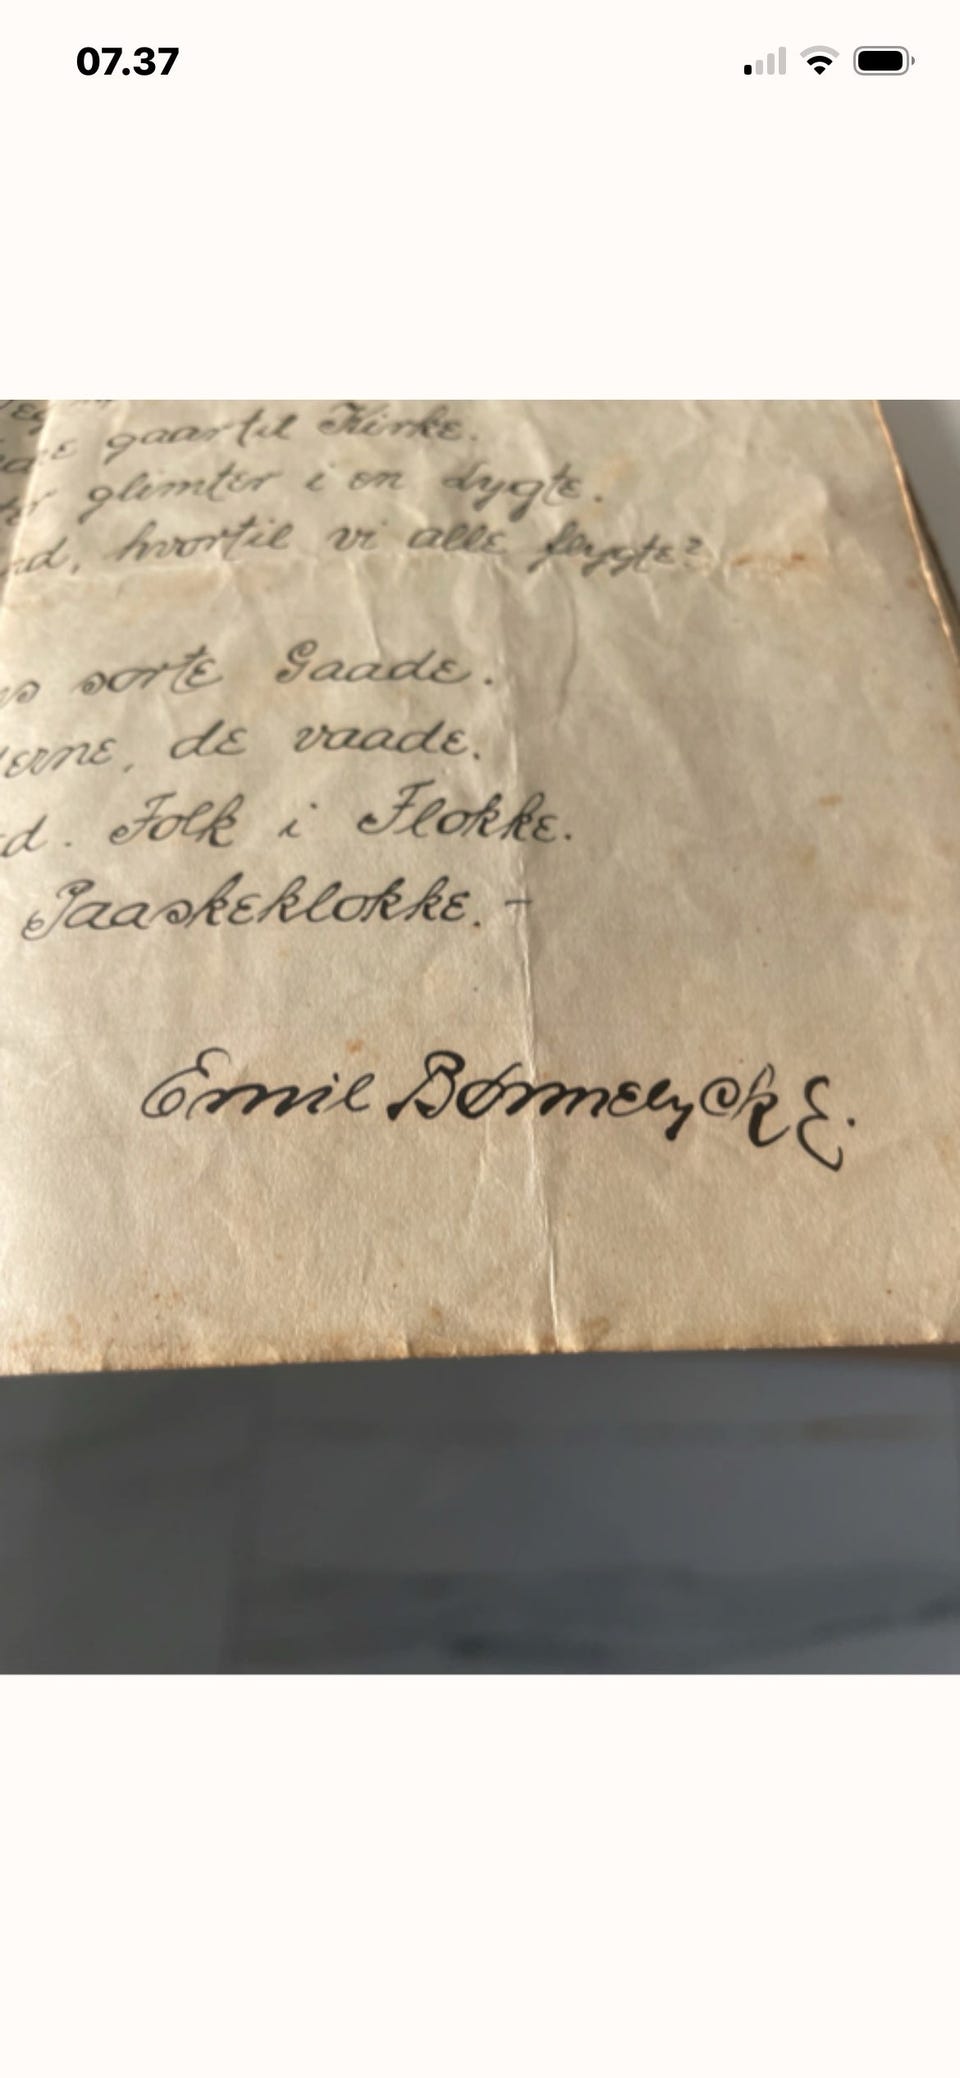 07.37
gaar til Kirke.
glimter i en Lygte.
hvortil vi alle flygte?
sorte Gaade.
erne, de vaade.
d. Folk i Flokke.
Paaskeklokke. –
Emil Bønnelycke.